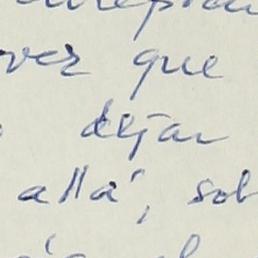 ver que
dejar
allá, sob